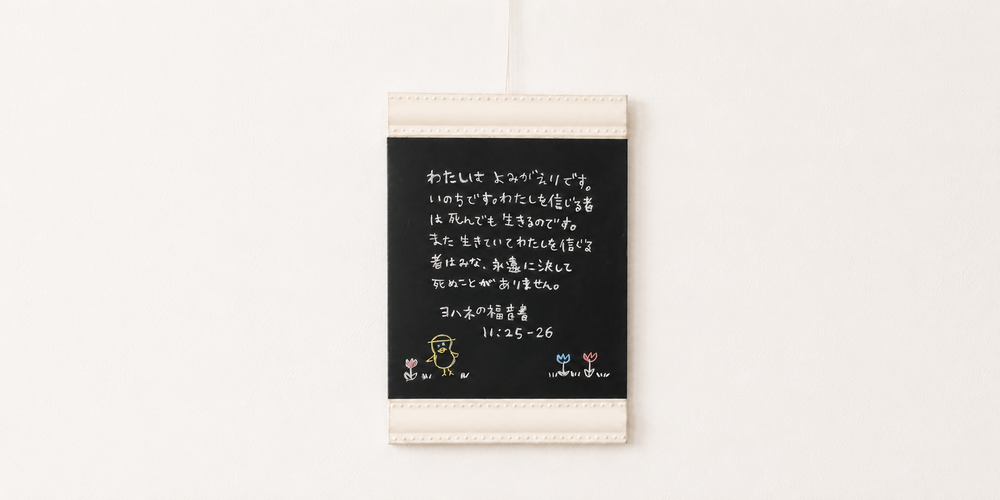 わたしは よみがえりです。
いのちです。わたしを信じる者
は 死んでも 生きるのです。
また 生きていてわたしを信じる
者はみな、永遠に決して
死ぬことがありません。
ヨハネの福音書
11:25-26